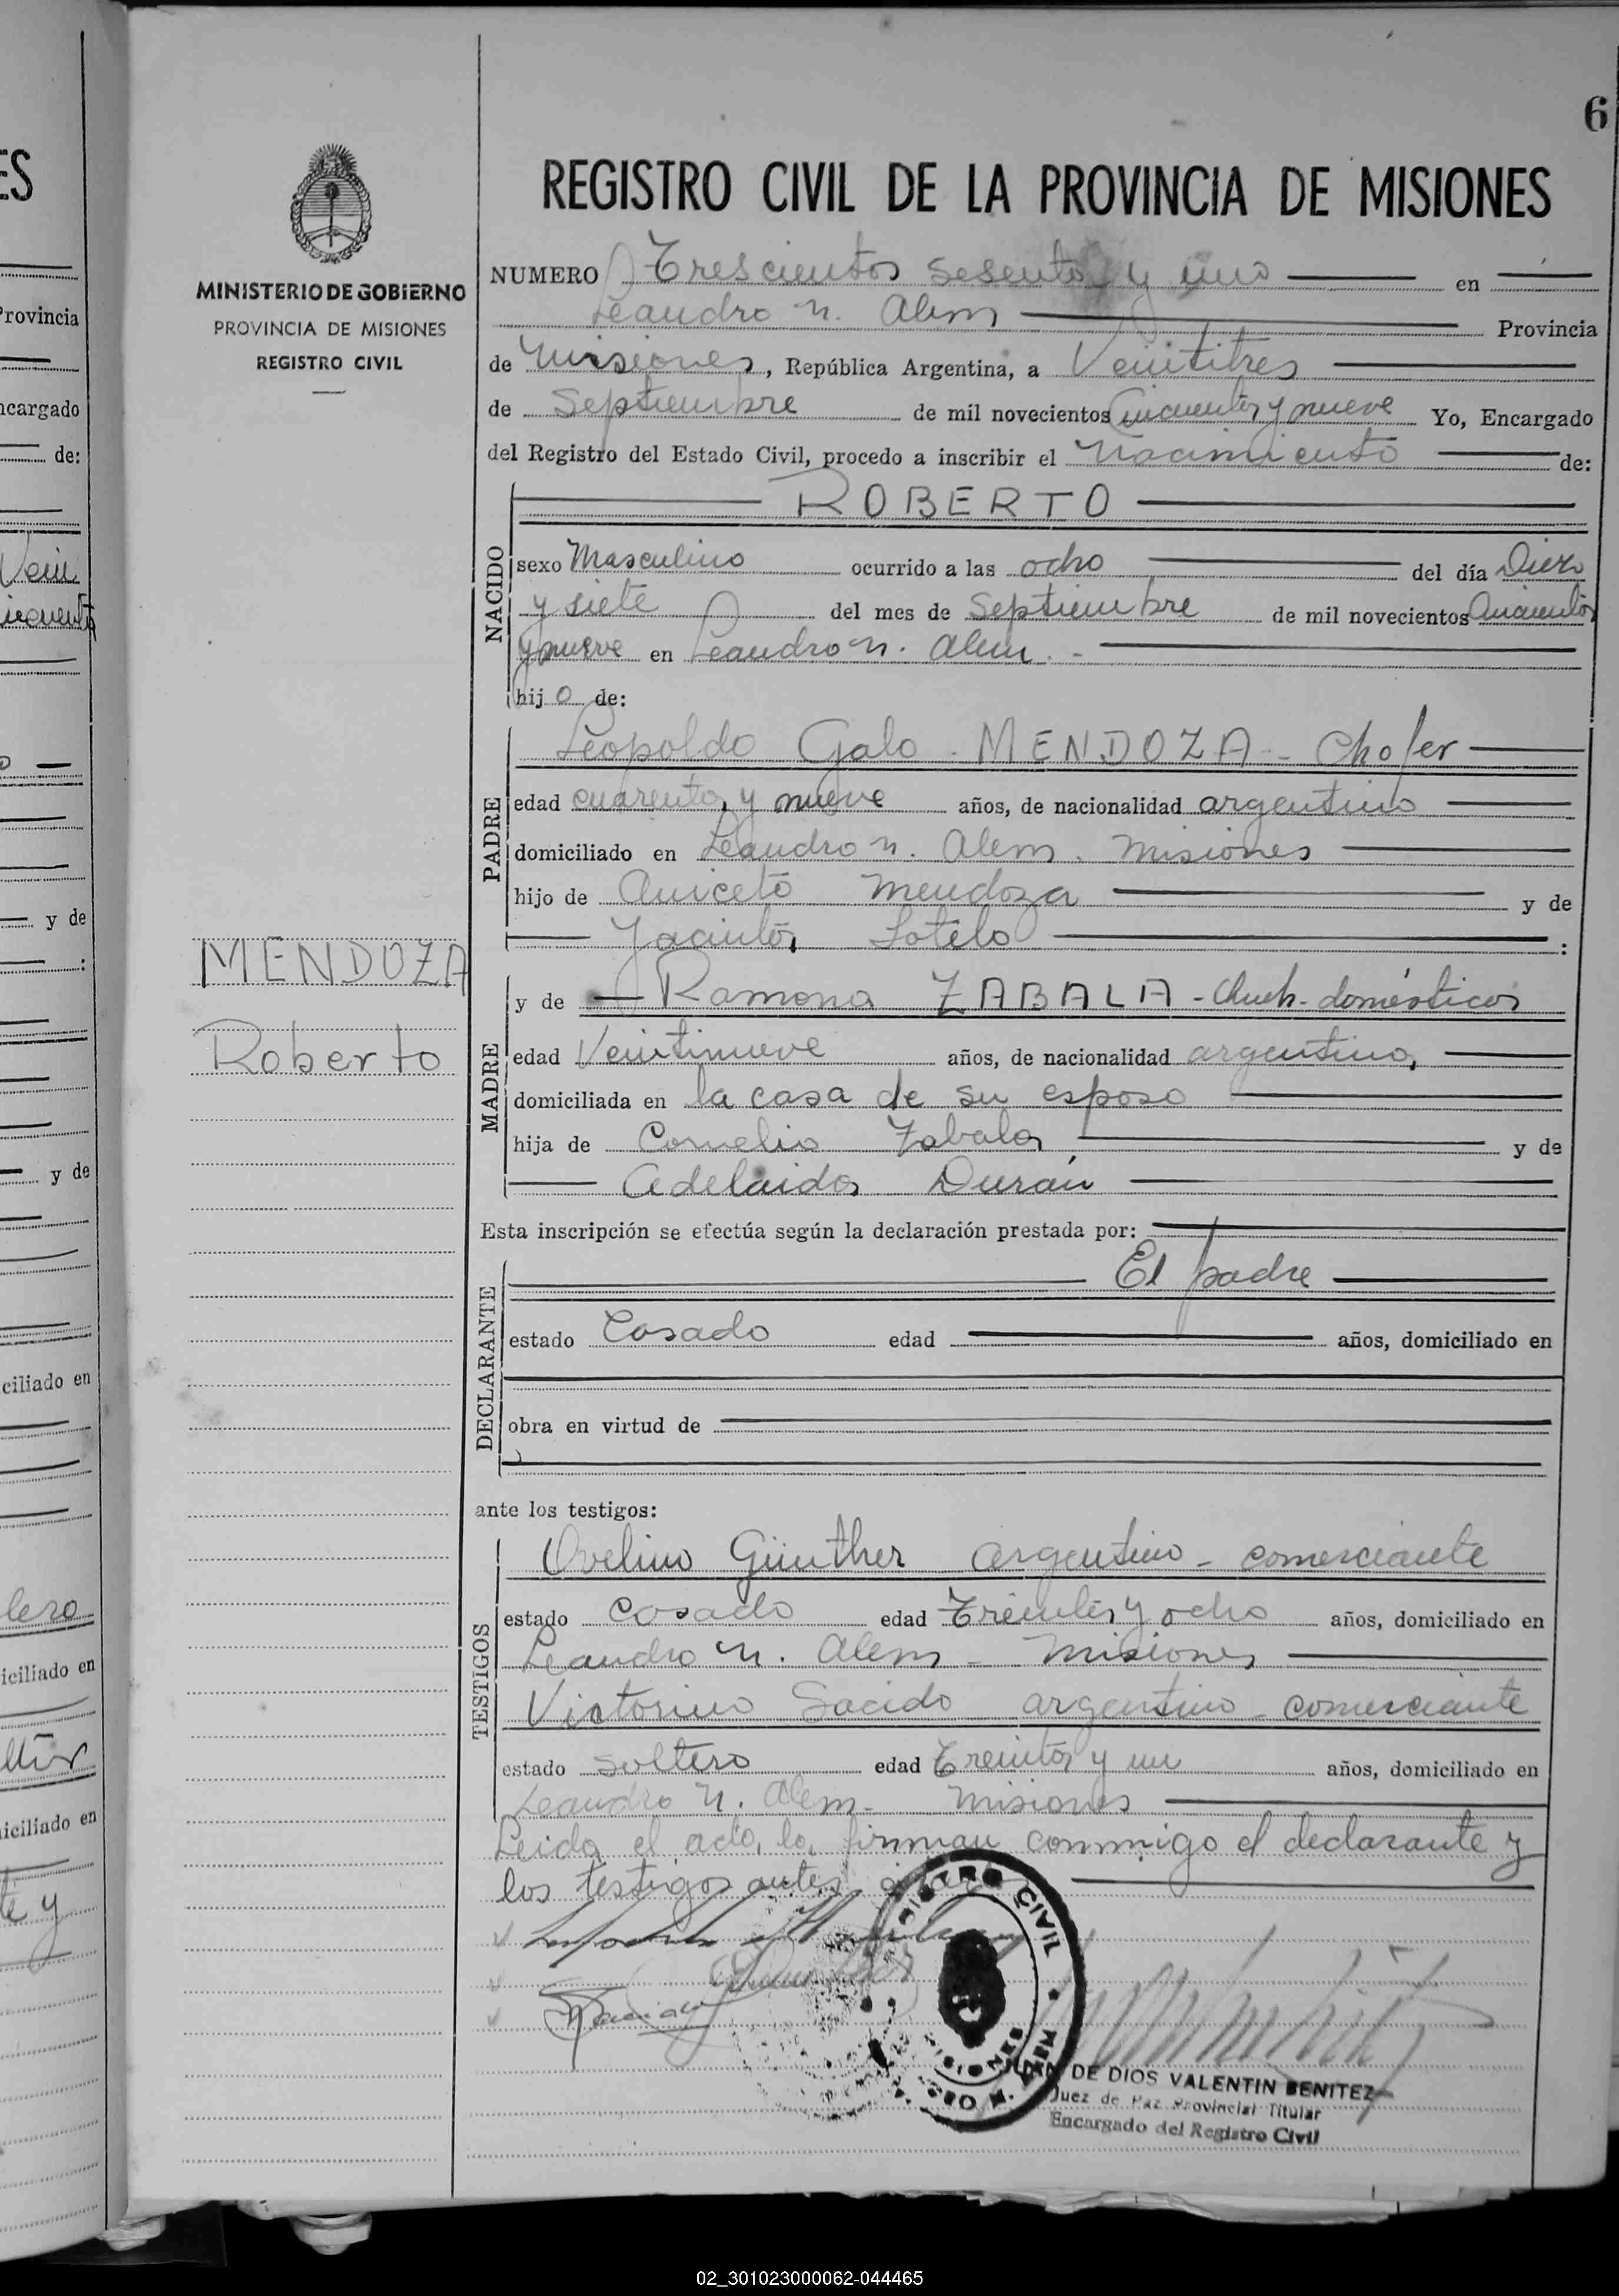 6
REGISTRO CIVIL DE LA PROVINCIA DE MISIONES
MINISTERIO DE GOBIERNO
PROVINCIA DE MISIONES
REGISTRO CIVIL
NUMERO Trescientos sesenta y uno en
Leandro N. Alem Provincia
de Misiones, República Argentina, a Veintitres
de Septiembre de mil novecientos Cincuenta y nueve Yo, Encargado
del Registro del Estado Civil, procedo a inscribir el Nacimiento de:
NACIDO
ROBERTO
sexo Masculino ocurrido a las ocho del día Diez
y siete del mes de Septiembre de mil novecientos Cincuenta
y nueve en Leandro N. Alem.-
hijo de:
PADRE
Leopoldo Galo - MENDOZA - Chofer
edad cuarenta y nueve años, de nacionalidad argentino
domiciliado en Leandro N. Alem. Misiones
hijo de Aniceto Mendoza y de
Jacinta Sotelo :
MENDOZA
Roberto
MADRE
y de Ramona ZABALA - domésticos
edad Veintinueve años, de nacionalidad argentina,
domiciliada en la casa de su esposo
hija de Cornelio Zabala y de
Adelaida Durán
Esta inscripción se efectúa según la declaración prestada por:
DECLARANTE
El padre
estado Casado edad años, domiciliado en
obra en virtud de
ante los testigos:
TESTIGOS
Ovelino Günther argentino - comerciante
estado Casado edad Treinta y ocho años, domiciliado en
Leandro N. Alem - Misiones
Victorino Sacido argentino - comerciante
estado soltero edad Treinta y un años, domiciliado en
Leandro N. Alem - Misiones
Leida el acta, la firman conmigo el declarante y
los testigos antes
REGISTRO CIVIL
MISIONES
JUAN DE DIOS VALENTIN BENITEZ
Juez de Paz Provincial Titular
Encargado del Registro Civil
ES
Provincia
ncargado
de:
y de
:
y de
ciliado en
lero
iciliado en
iciliado en
te y
02_301023000062-044465